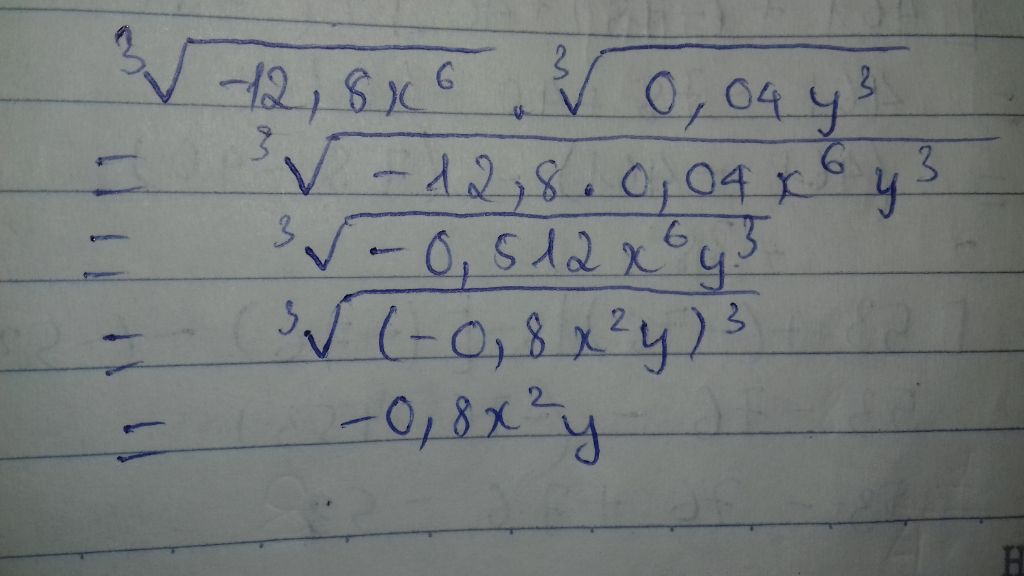 ∛(-12,8x⁶) . ∛(0,04y³)
= ∛(-12,8.0,04x⁶y³)
= ∛(-0,512x⁶y³)
= ∛((-0,8x²y)³)
= -0,8x²y
H